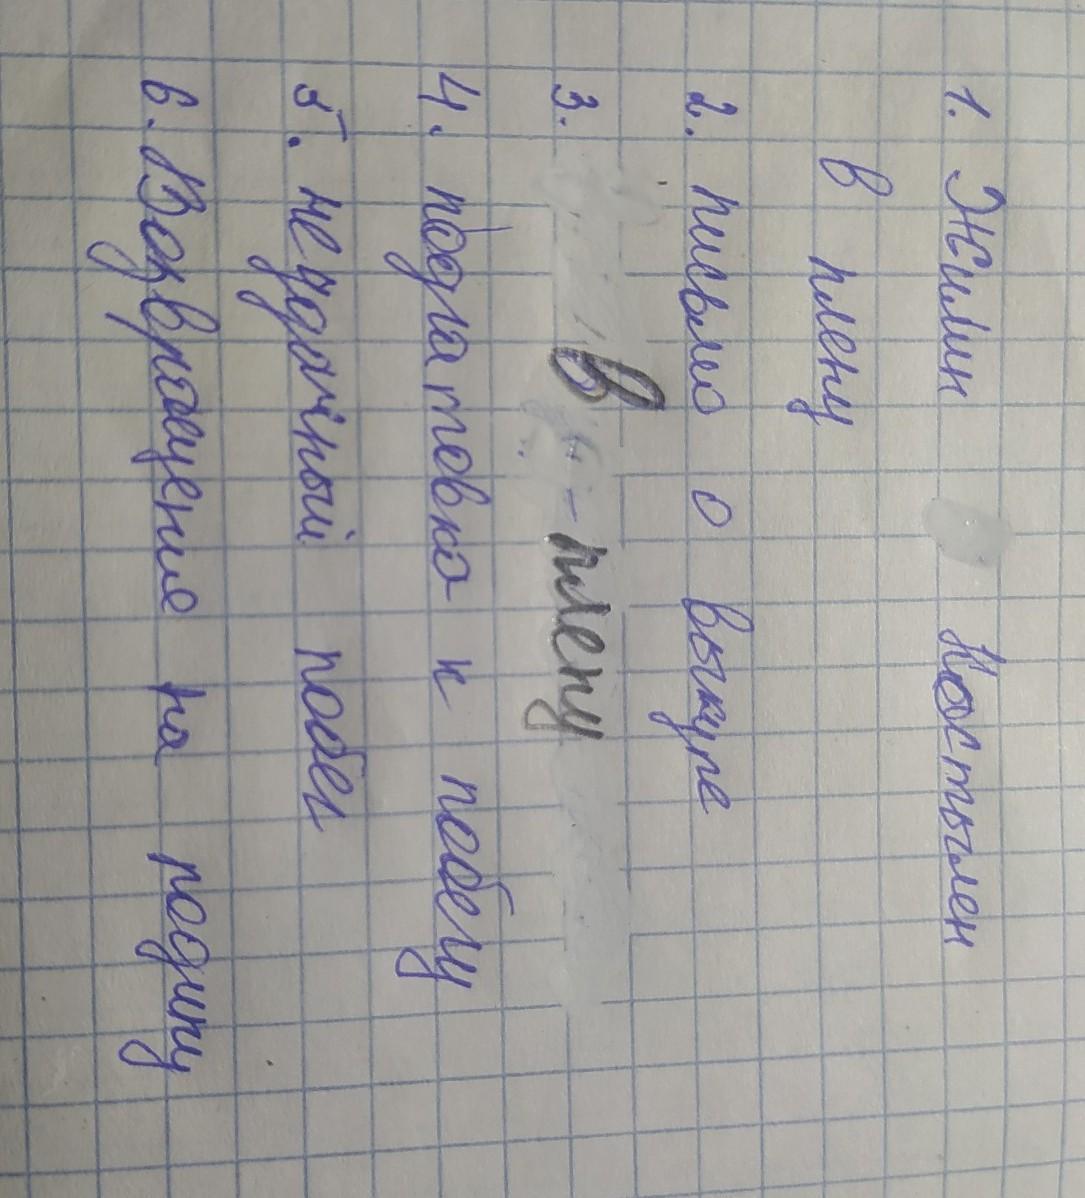 1. Жилин Костылен
в плену
2. письмо о выкупе
3. В - плену
4. подготовка к побегу
5. неудачный побег
6. Возвращение на родину